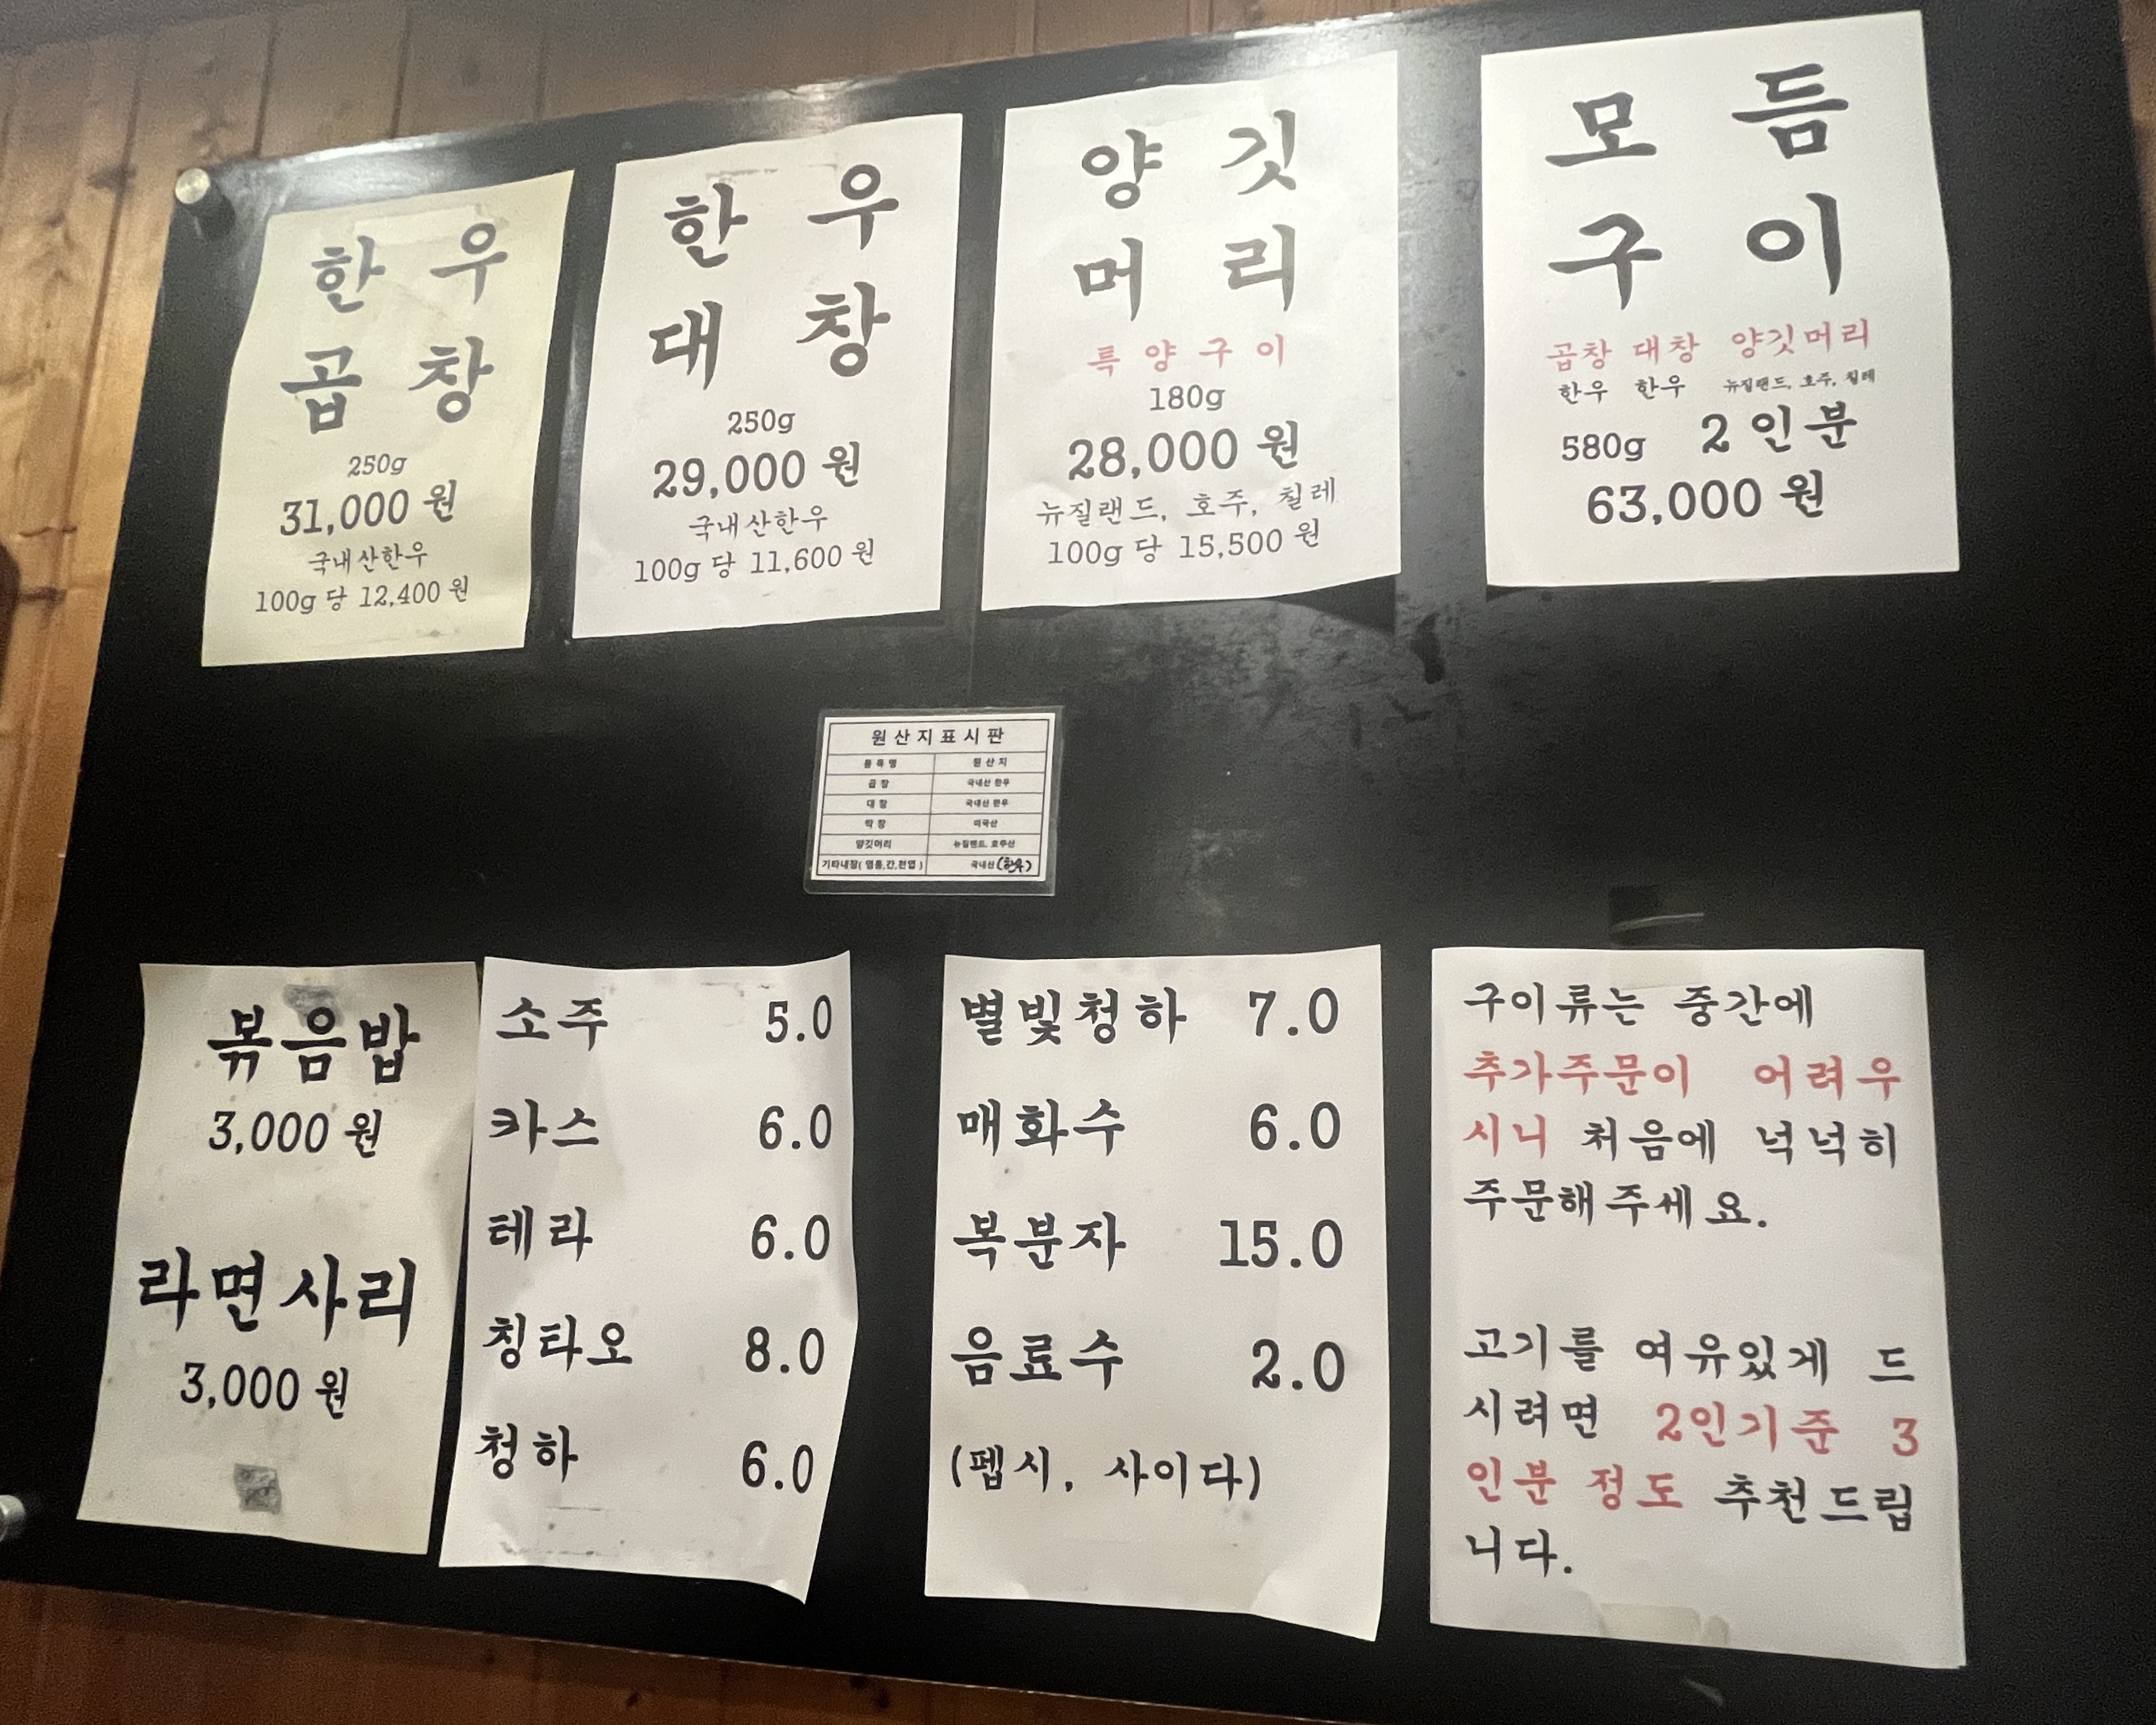 한우
곱창
250g
31,000 원
국내산한우
100g 당 12,400 원
한우
대창
250g
29,000 원
국내산한우
100g 당 11,600 원
양깃
머리
특양구이
180g
28,000 원
뉴질랜드, 호주, 칠레
100g 당 15,500 원
모듬
구이
곱창 대창 양깃머리
한우 한우 뉴질랜드, 호주, 칠레
580g 2인분
63,000 원
원산지표시판
품목명 원산지
곱창 국내산 한우
대창 국내산 한우
막창 미국산
양깃머리 뉴질랜드, 호주산
기타내장( 염통,간,천엽 ) 국내산(한우)
볶음밥
3,000 원
라면사리
3,000 원
소주 5.0
카스 6.0
테라 6.0
칭타오 8.0
청하 6.0
별빛청하 7.0
매화수 6.0
복분자 15.0
음료수 2.0
(펩시, 사이다)
구이류는 중간에
추가주문이 어려우
시니 처음에 넉넉히
주문해주세요.
고기를 여유있게 드
시려면 2인기준 3
인분 정도 추천드립
니다.